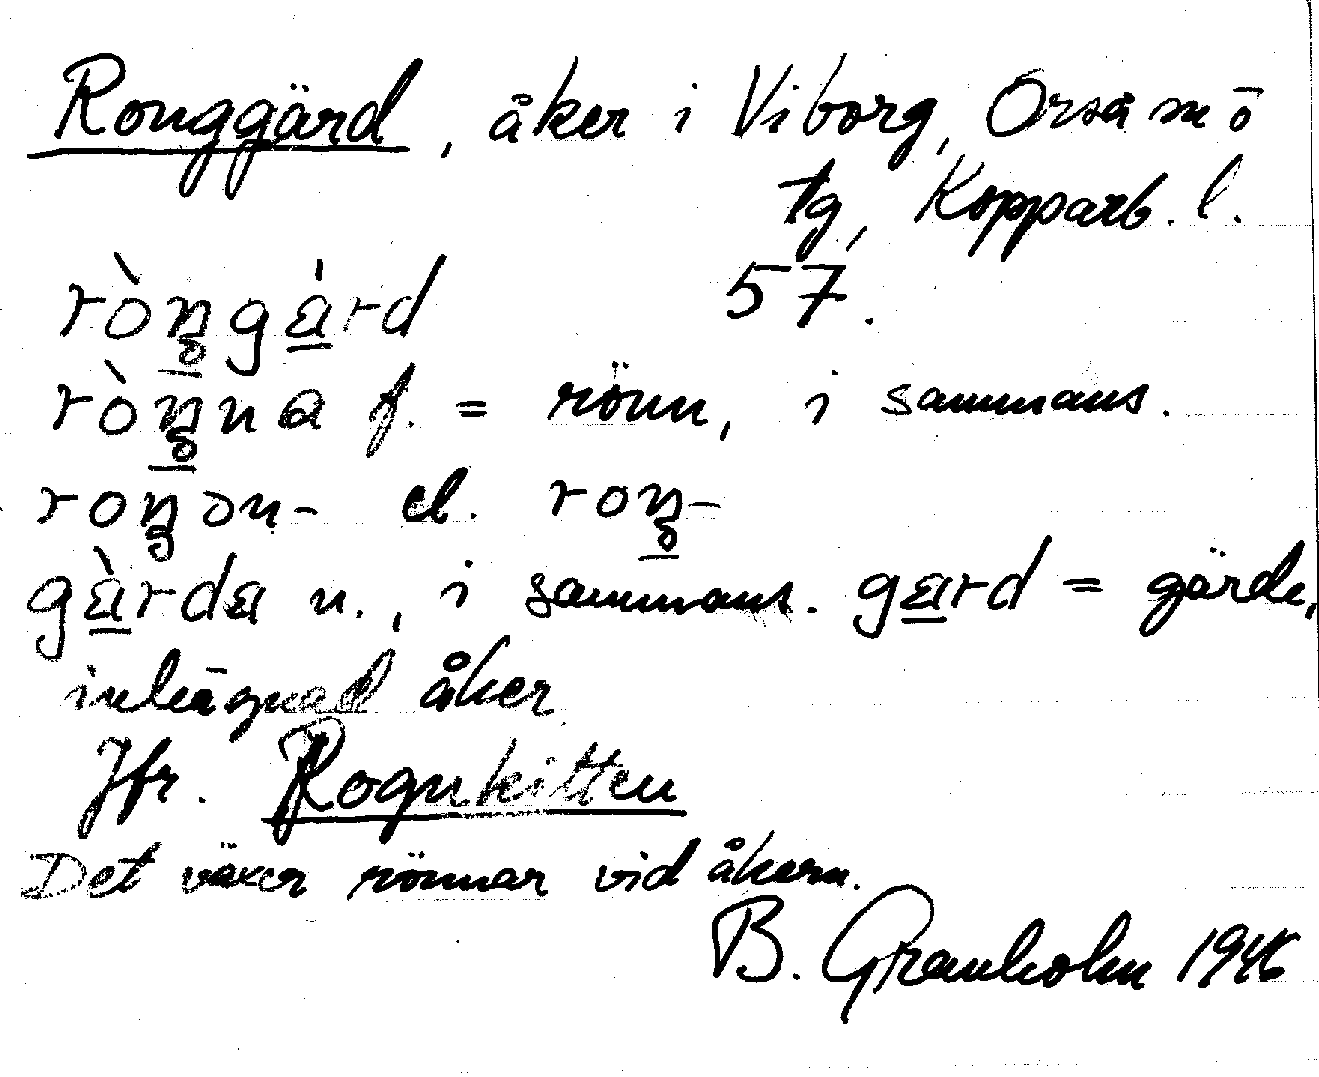 Ronggärd, åker i Viborg, Orsa sn ö
tg, Kopparb. l.
57.
f. = rönn, i sammans.
el.
n., i sammans. = gärde,
inhägnad åker
Jfr. Rognkitten
Det växer rönnar vid åkern.
B. Granholm 1946